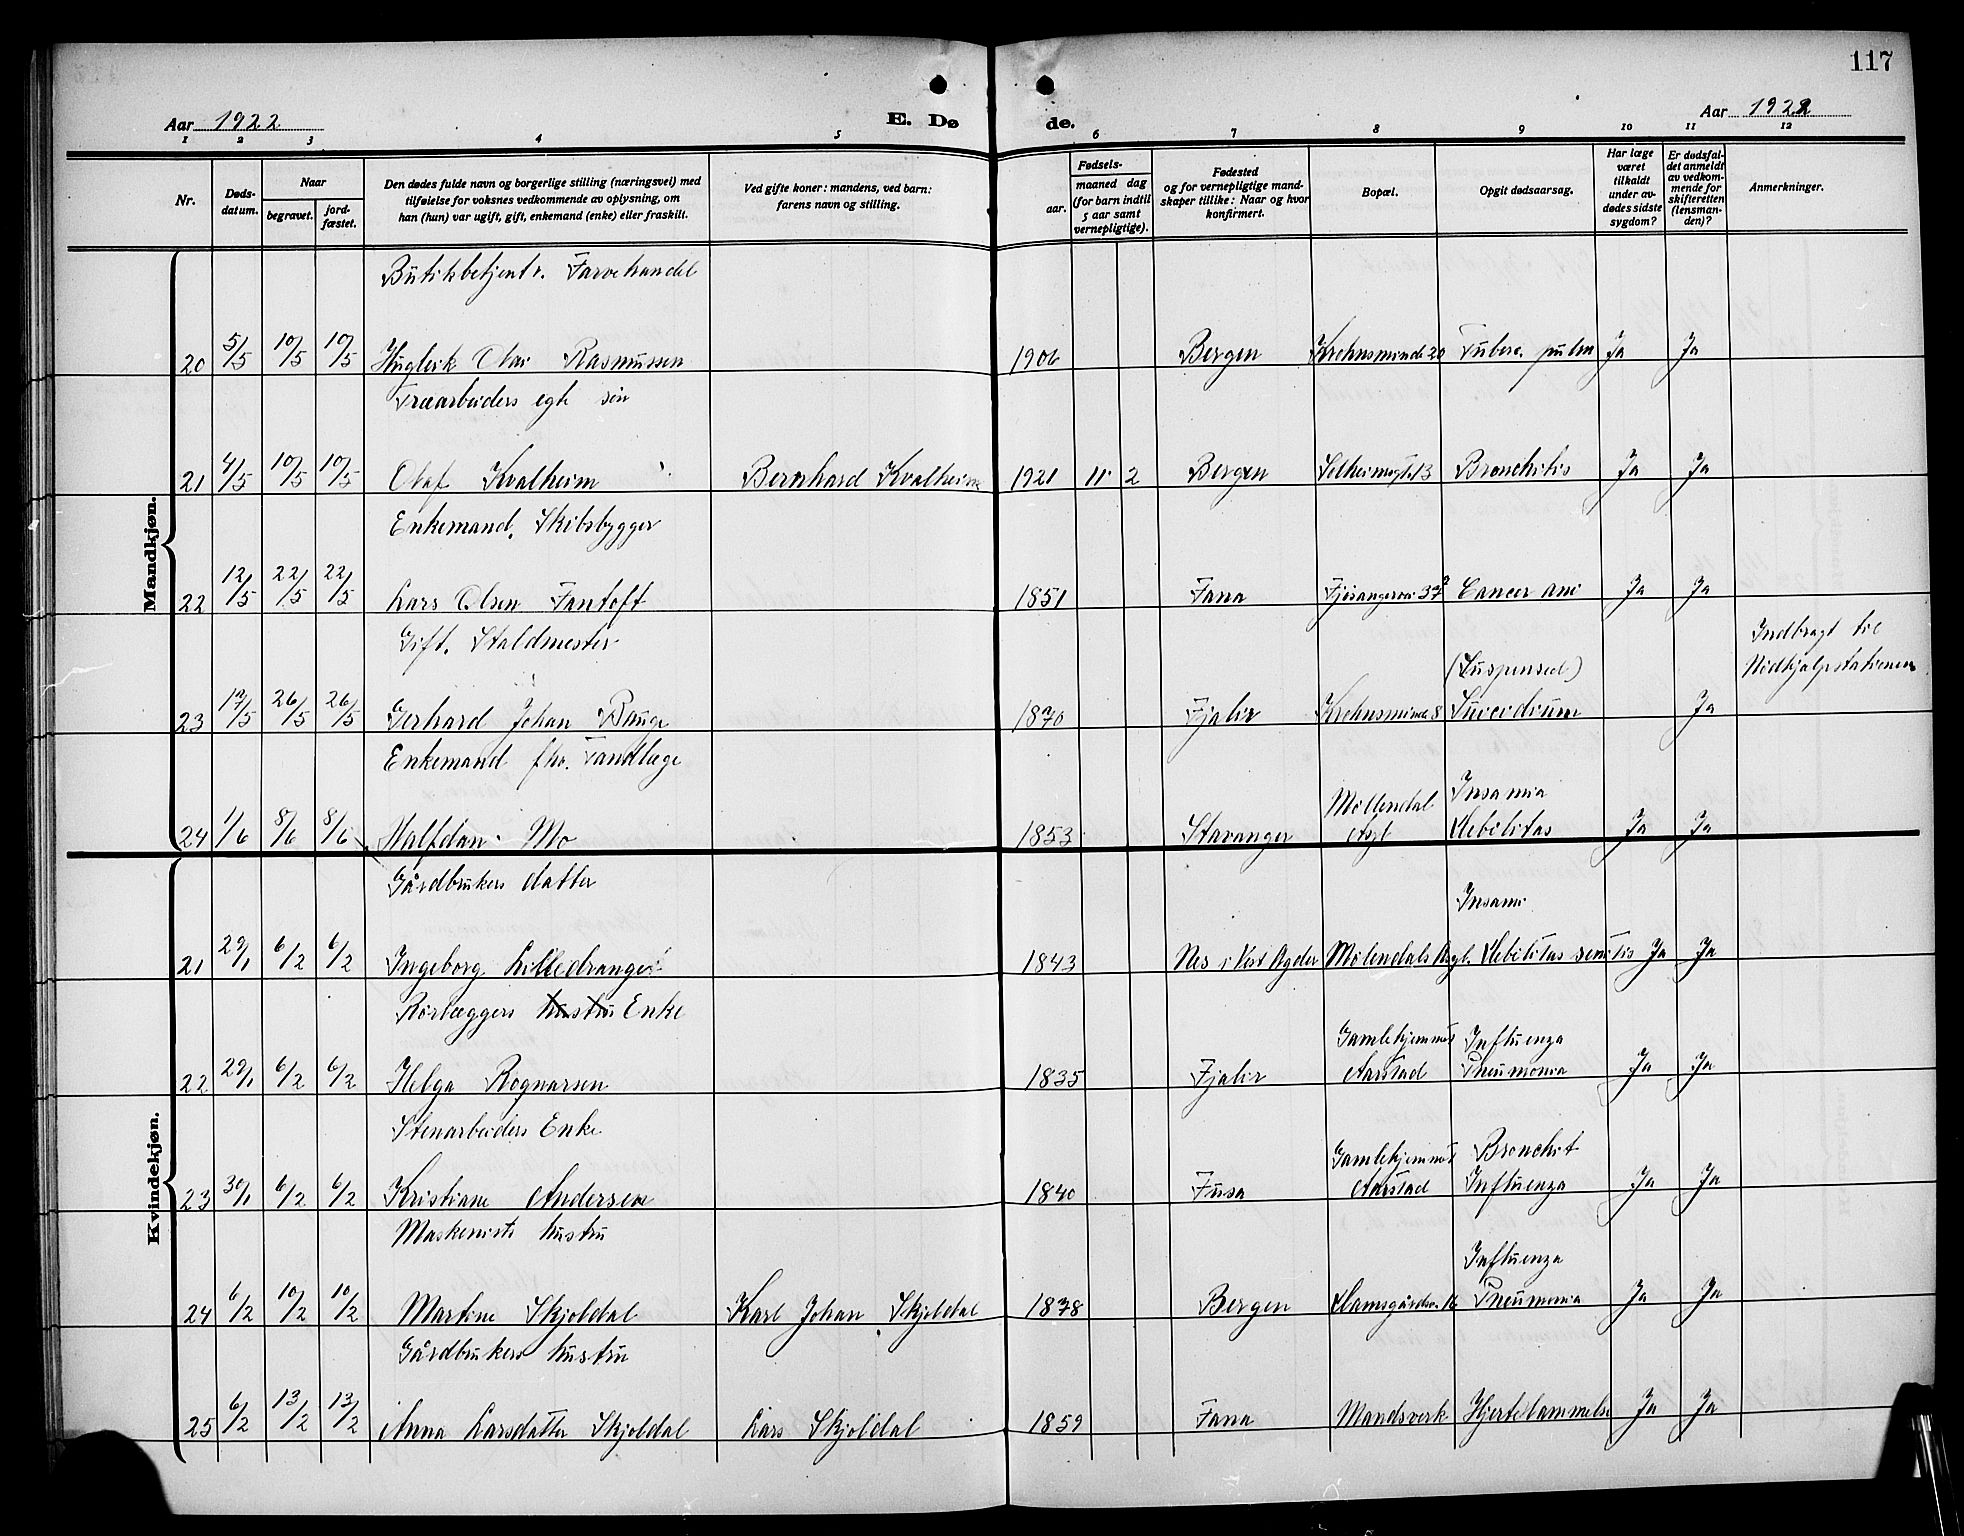 117
Aar 1922
E. Dø
de.
Aar 1922
1 2 3 4 5 6 7 8 9 10 11 12
Nr.
Døds-
datum.
Naar
begravet.
jord-
fæstet.
Den dødes fulde navn og borgerlige stilling (næringsvei) med
tilføielse for voksnes vedkommende av oplysning, om
han (hun) var ugift, gift, enkemand (enke) eller fraskilt.
Ved gifte koner: mandens, ved barn:
farens navn og stilling.
Fødsels-
aar.
maaned dag
(for barn indtil
5 aar samt
vernepligtige).
Fødested
og for vernepligtige mand-
skaper tillike: Naar og hvor
konfirmert.
Bopæl.
Opgit dødsaarsag.
Har læge
været
tilkaldt
under av-
dødes sidste
sygdom?
Er dødsfal-
det anmeldt
av vedkom-
mende for
skifteretten
(lensman-
den)?
Anmerkninger.
Mandkjøn.
Butikbetjent i Farvehandel
20 5/5 10/5 10/5 Rasmussen 1906 Bergen Krohnsminde 20 Tuberc. pulm Ja Ja
Træarbeiders egte søn
21 4/5 10/5 10/5 Olaf Kvalheim Bernhard Kvalheim 1921 11 2 Bergen Solheimsgt. 13 Bronchitis Ja Ja
Enkemand. Skibsbygger
22 12/5 22/5 22/5 Lars Olsen Fantoft 1851 Fana Fjøsangervei 37 Cancer ani Ja Ja
Gift. Staldmester
(Suspensed)
Indbragt til
Nødhjælpstationen
23 17/5 26/5 26/5 Gerhard Johan Bauge 1870 Fjaler Krohnsminde 8 Suicidium Ja
Enkemand fhv. Tandlæge
Møllendal
Insania
24 1/6 8/6 8/6 Halfdan Mo 1853 Stavanger Asyl Debilitas Ja Ja
Kvindekjøn.
Gårdbrukers datter
Insani
21 29/1 6/2 6/2 Ingeborg Lilledrange 1843 Nes i Vest Agder Møllendals Asyl. Debilitas senilis Ja Ja
Rørlæggers hustru Enke
Gamlehjemmet
Influenza
22 29/1 6/2 6/2 Helga Rognarsen 1835 Fjaler Aarstad Pneumonia Ja Ja
Stenarbeiders Enke
Gamlehjemmet
Bronchit
23 30/1 6/2 6/2 Kristiane Andersen 1840 Fusa Aarstad Influenza Ja Ja
Maskenists hustru
Influenza
24 6/2 10/2 10/2 Martine Skjoldal Karl Johan Skjoldal 1878 Bergen Damsgårdsv. 16 Pneumonia Ja Ja
Gårdbrukers hustru
25 6/2 13/2 13/2 Anna Larsdatter Skjoldal Lars Skjoldal 1859 Fana Mandsverk Hjertelammelse Ja Ja